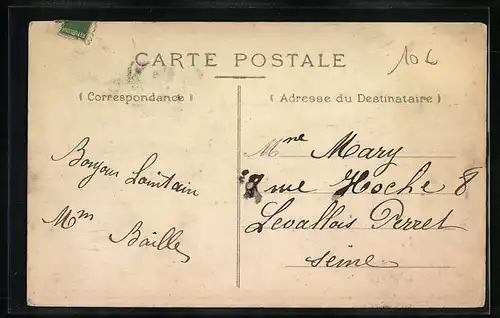 CARTE POSTALE
10 L
( Correspondance )
( Adresse du Destinataire )
Bonjour Lointain
Mm Baille
Mme Mary
8 rue Hoche 8
Levallois Perret
Seine